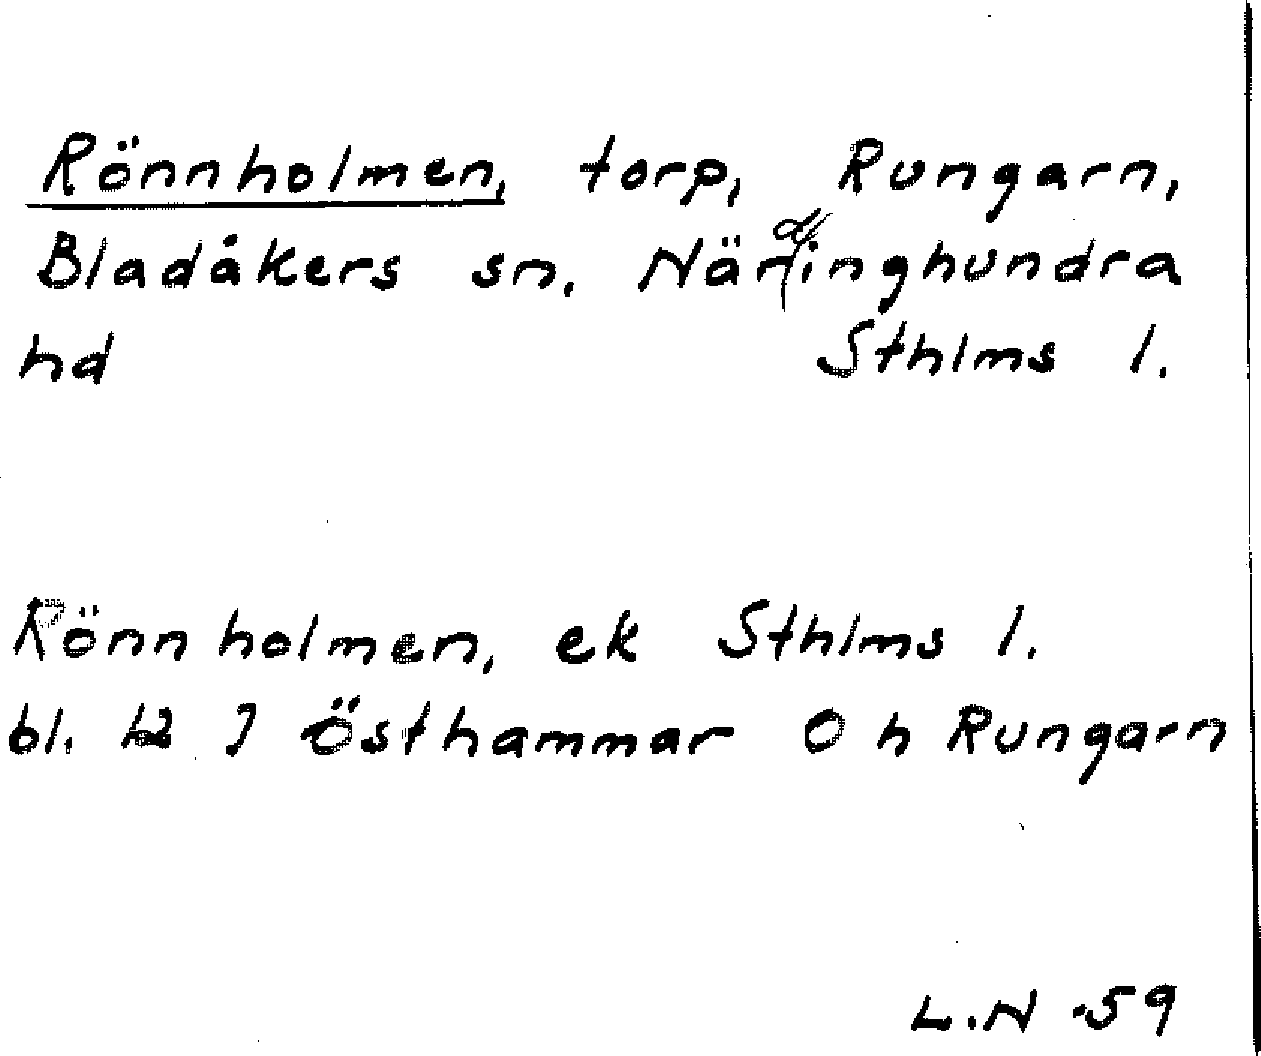 Rönnholmen, torp, Rungarn,
Bladåkers sn. Närdinghundra
hd Sthlms l.
Rönnholmen, ek Sthlms l.
bl. 12 J Östhammar O h Rungarn
L.N -59